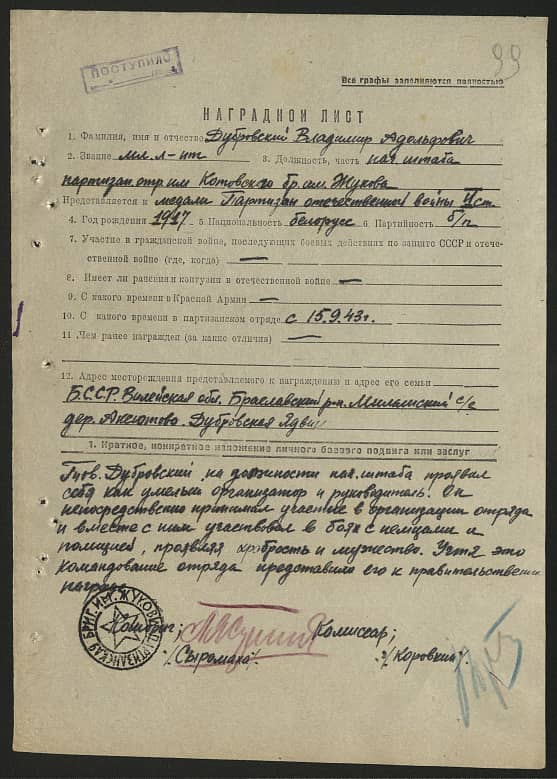 ПОСТУПИЛО
99
Все графы заполняются полностью
НАГРАДНОЙ ЛИСТ
1. Фамилия, имя и отчество Дубровский Владимир Адольфович
2. Звание мл. л-нт 3. Должность, часть нач. штаба
партизан. отр. им. Котовского бр. им. Жукова
Представляется к медали Партизан отечественной войны II ст.
4. Год рождения 1917 5. Национальность белорусс 6. Партийность б/п
7. Участие в гражданской войне, последующих боевых действиях по защите СССР и отече-
ственной войне (где, когда) —
8. Имеет ли ранения и контузии в отечественной войне —
9. С какого времени в Красной Армии —
10. С какого времени в партизанском отряде с 15.9.43г.
11. Чем ранее награжден (за какие отличия) —
12. Адрес месторождения представляемого к награждению и адрес его семьи
Б.С.С.Р. Вилейская обл. Браславский р-н. с/с
дер. Аксютово. Дубровская Ядви
1. Краткое, конкретное изложение личного боевого подвига или заслуг
Тов. Дубровский на должности нач. штаба проявил
себя как умелый организатор и руководитель. Он
непосредственно принимал участие в организации отряда
и вместе с ним участвовал в боях с немцами и
полицией, проявляя храбрость и мужество. Учтя это
командование отряда представило его к правительствен
награде
ПАРТИЗАНСКАЯ БРИГ. ИМ. ЖУКОВА
Комбриг; Комиссар;
/Сыромаха/. /Коровкин/.